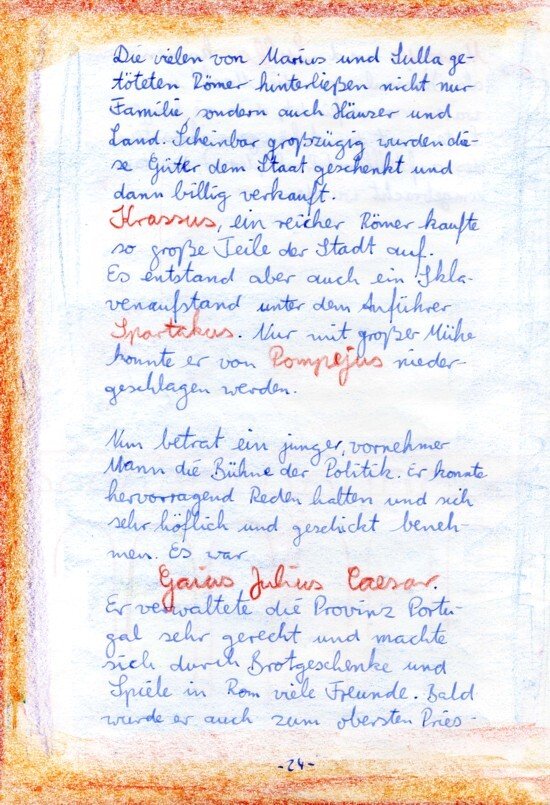 Die vielen von Marius und Sulla ge-
töteten Römer hinterließen nicht nur
Familie, sondern auch Häuser und
Land. Scheinbar großzügig wurden die-
se Güter dem Staat geschenkt und
dann billig verkauft.
Krassus, ein reicher Römer kaufte
so große Teile der Stadt auf.
Es entstand aber auch ein Skla-
venaufstand unter dem Anführer
Spartakus. Nur mit großer Mühe
konnte er von Pompejus nieder-
geschlagen werden.
Nun betrat ein junger, vornehmer
Mann die Bühne der Politik. Er konnte
hervorragend Reden halten und sich
sehr höflich und geschickt beneh-
men. Es war
Gaius Julius Caesar.
Er verwaltete die Provinz Portu-
gal sehr gerecht und machte
sich durch Brotgeschenke und
Spiele in Rom viele Freunde. Bald
wurde er auch zum obersten Pries-
-24-